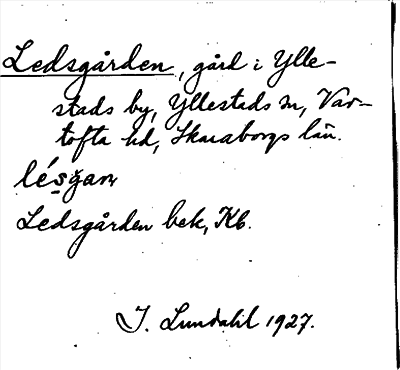 Ledsgården, gård i Ylle-
stads by, Yllestads sn, Var-
tofta hd, Skaraborgs län.
lésgan,
Ledsgården bek, Kb.
I. Lundahl 1927.